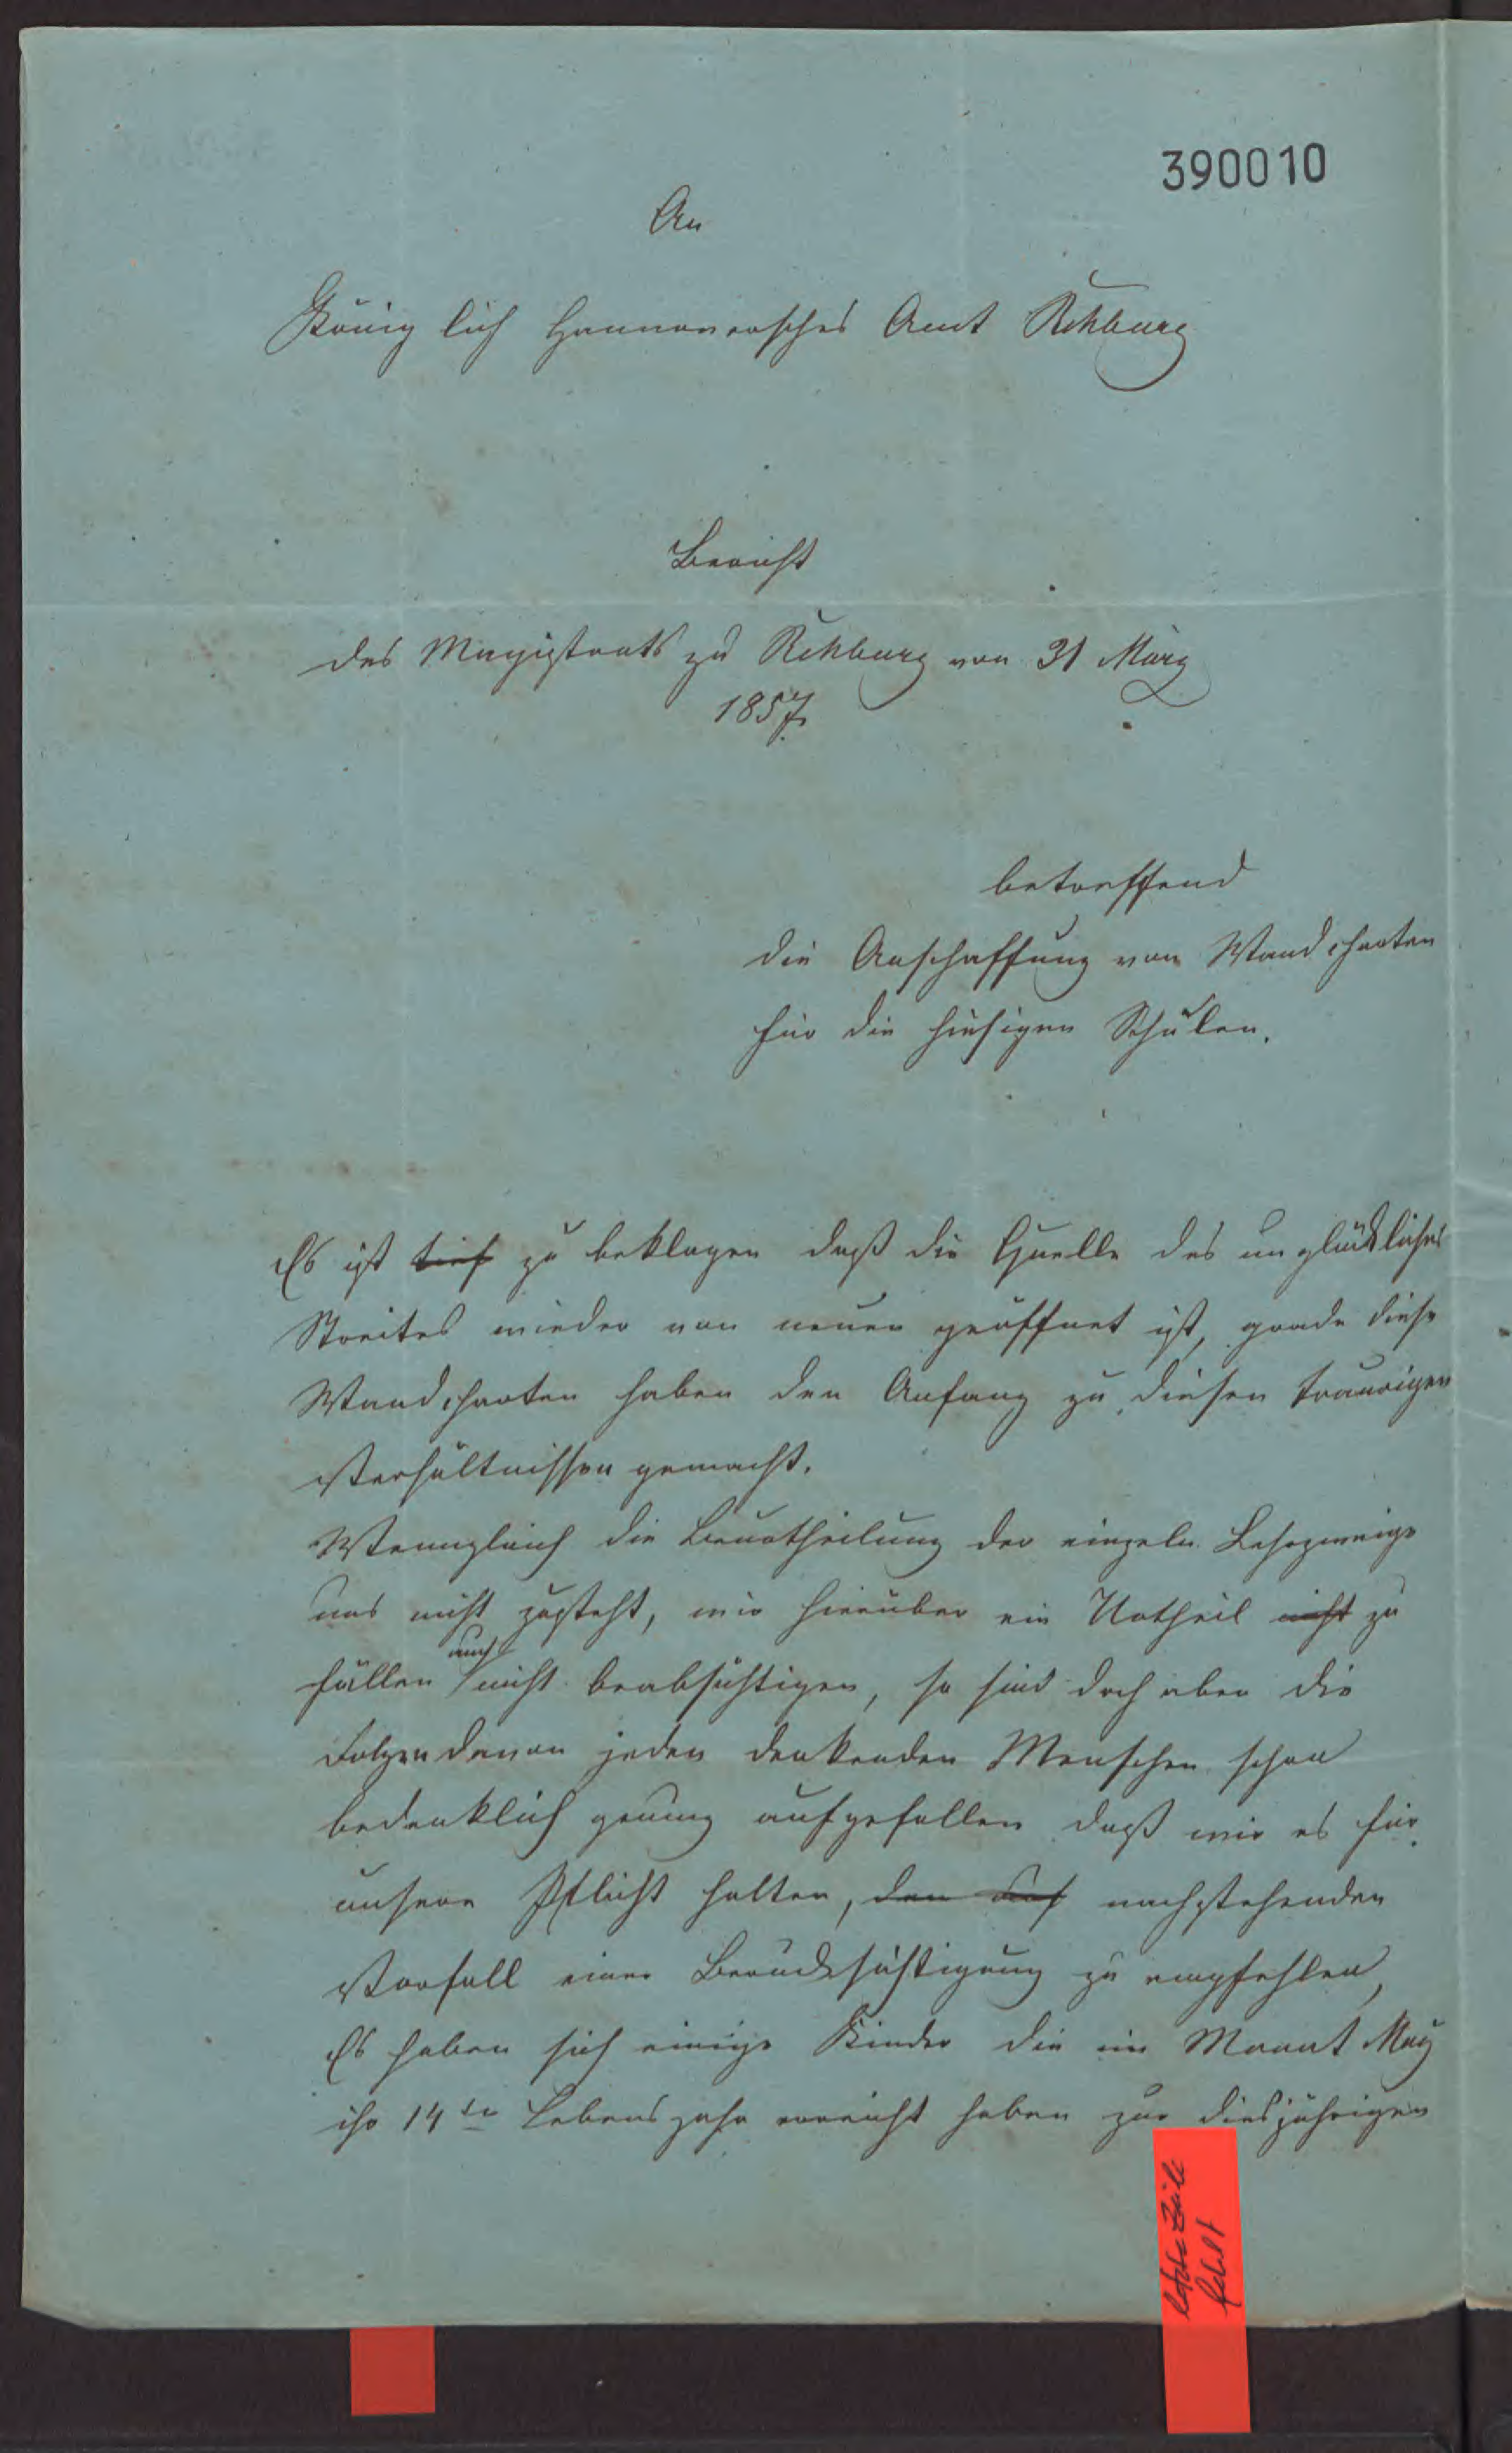 390010
An
Königlich Hannoversches Amt Rehburg
Bericht
des Magistrats zu Rehburg von 31 März
1857
betreffend
die Anschaffung von Wandcharten
für die hiesigen Schulen.
Es ist tief zu beklagen daß die Quelle des unglücklichen
Streites wieder von neuen geöffnet ist, grade diese
Wandcharten haben den Anfang zu diesen traurigen
Verhältnissen gemacht.
Wenngleich die Beurtheilung der einzeln Lehrzweige
uns nicht zusteht, wir hierüber ein Urtheil nicht zu
fällen auch nicht beabsichtigen, so sind doch aber die
Folgen davon jeden denkenden Menschen schon
bedenklich genug aufgefallen daß wir es für
unsere Pflicht halten, den nachstehenden
Vorfall einer Berücksichtigung zu empfehlen,
Es haben sich einige Kinder die im Monat May
ihr 14te Lebensjahr erreicht haben zur diesjährigen
letzte Zeile
fehlt